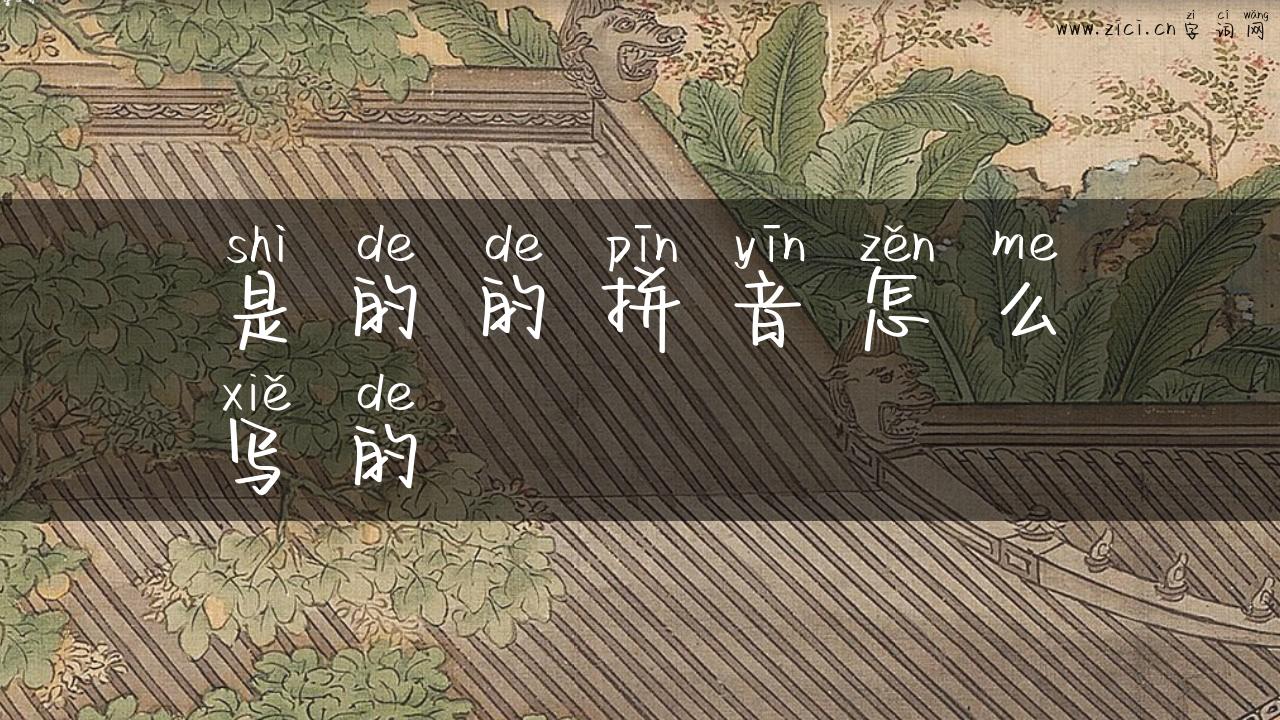 zì cí wǎng
www.zici.cn 字词网
shì de de pīn yīn zěn me
是的的拼音怎么
xiě de
写的